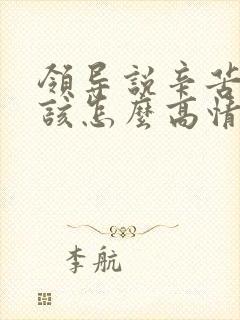 領导說辛苦
該怎麼高情
李航